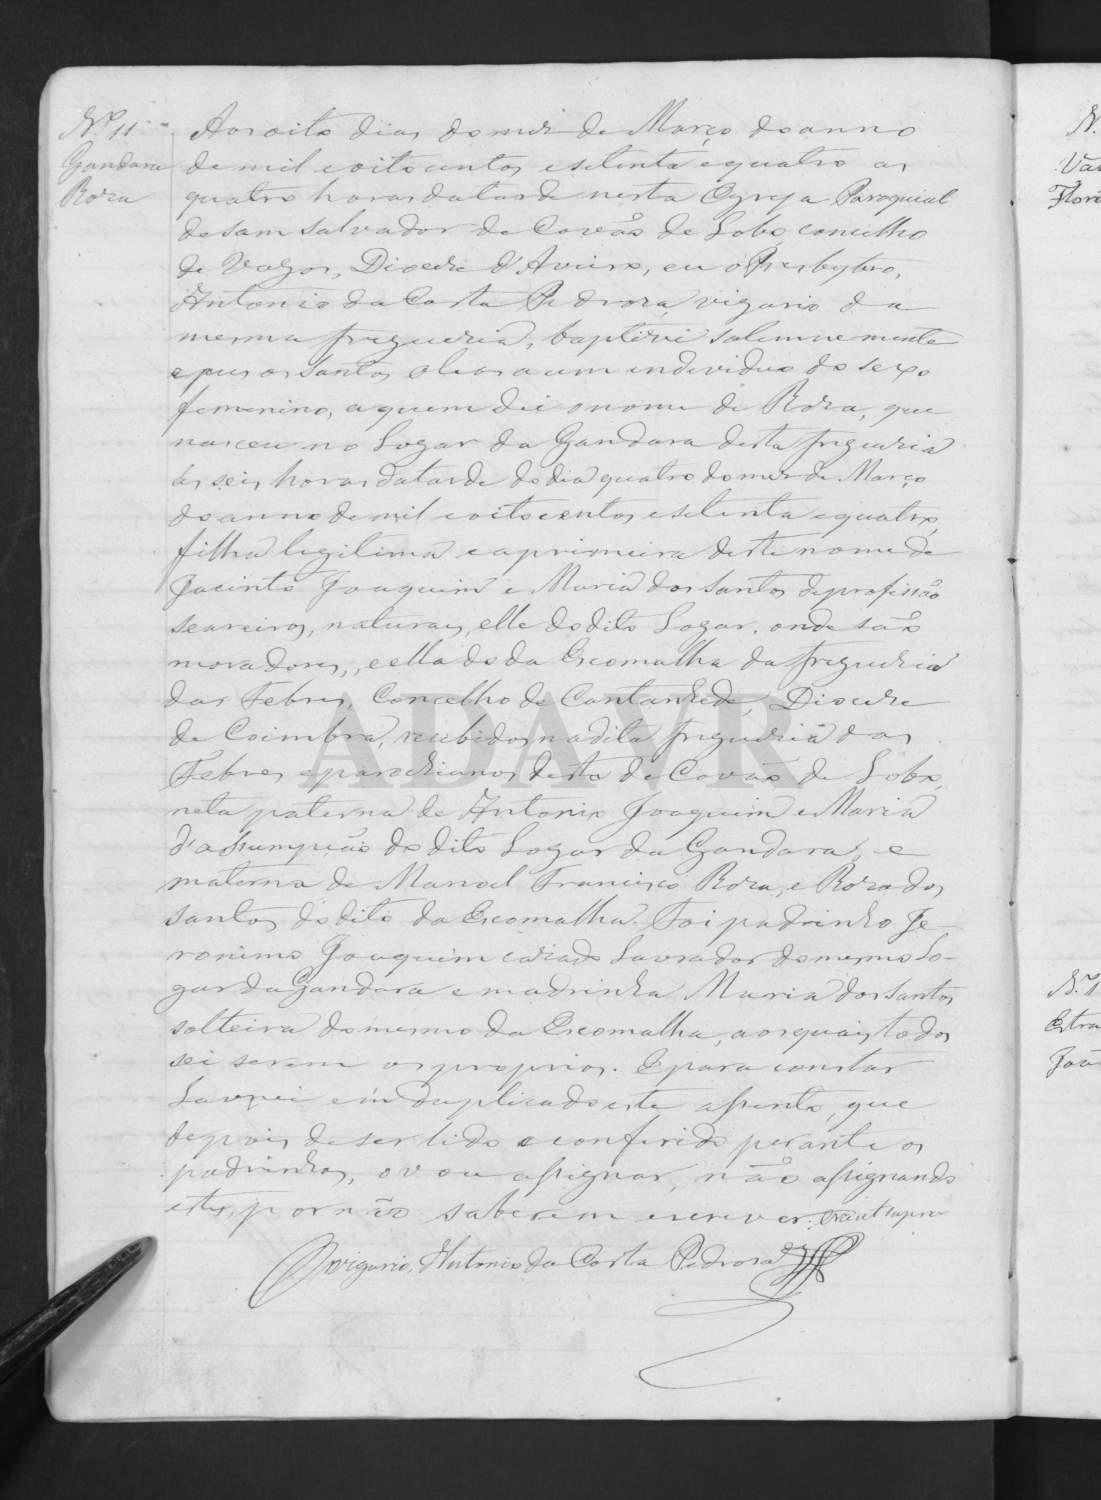 N.º 11
Gandara
Roza
Aos oito dias do mez de Março do anno
de mil e oito centos e setenta e quatro as
quatro horas da tarde nesta Egreja Paroquial
de sam Salvador de Covão de Lobo, concelho
de Vagos, Diocese d'Aveiro, eu o Presbytero,
Antonio da Costa Pedroza, vigario da
mesma freguezia, baptizei solemnemente
e pus os santos oleos a um individuo do sexo
femenino, a quem dei o nome de Roza, que
nasceu no Logar da Gandara desta freguezia
ás seis horas da tarde do dia quatro do mez de Março
do anno de mil e oito centos e setenta e quatro,
filha legitima e a primeira deste nome de
Jacinto Joaquim e Maria dos Santos de profissão
seareiros, naturaes, elle do dito Logar, onde são
moradores, e ella do da Escomalha da freguezia
das Febres, Concelho de Cantanhede, Diocese
de Coimbra, recebidos na dita freguezia das
Febres e parochianos desta de Covão de Lobo,
neta paterna de Antonio Joaquim e Maria
d'Assumpção do dito Logar da Gandara, e
materna de Manoel Francisco Roza, e Roza dos
santos do dito da Escomalha. Foi padrinho Je-
ronimo Joaquim cazado Lavrador do mesmo Lo-
gar da Gandara e madrinha Maria dos Santos
solteira do mesmo da Escomalha, aos quais todos
sei serem os proprios. E para constar
Lavrei em duplicado este assento, que
depois de ser lido e conferido perante os
padrinhos, o vou assignar, não assignando
estes, por não saberem escrever. Era ut supra
O vigario, Antonio da Costa Pedroza
ADAVR
N.
Va
Flori
N.º 1
Estra
Joã